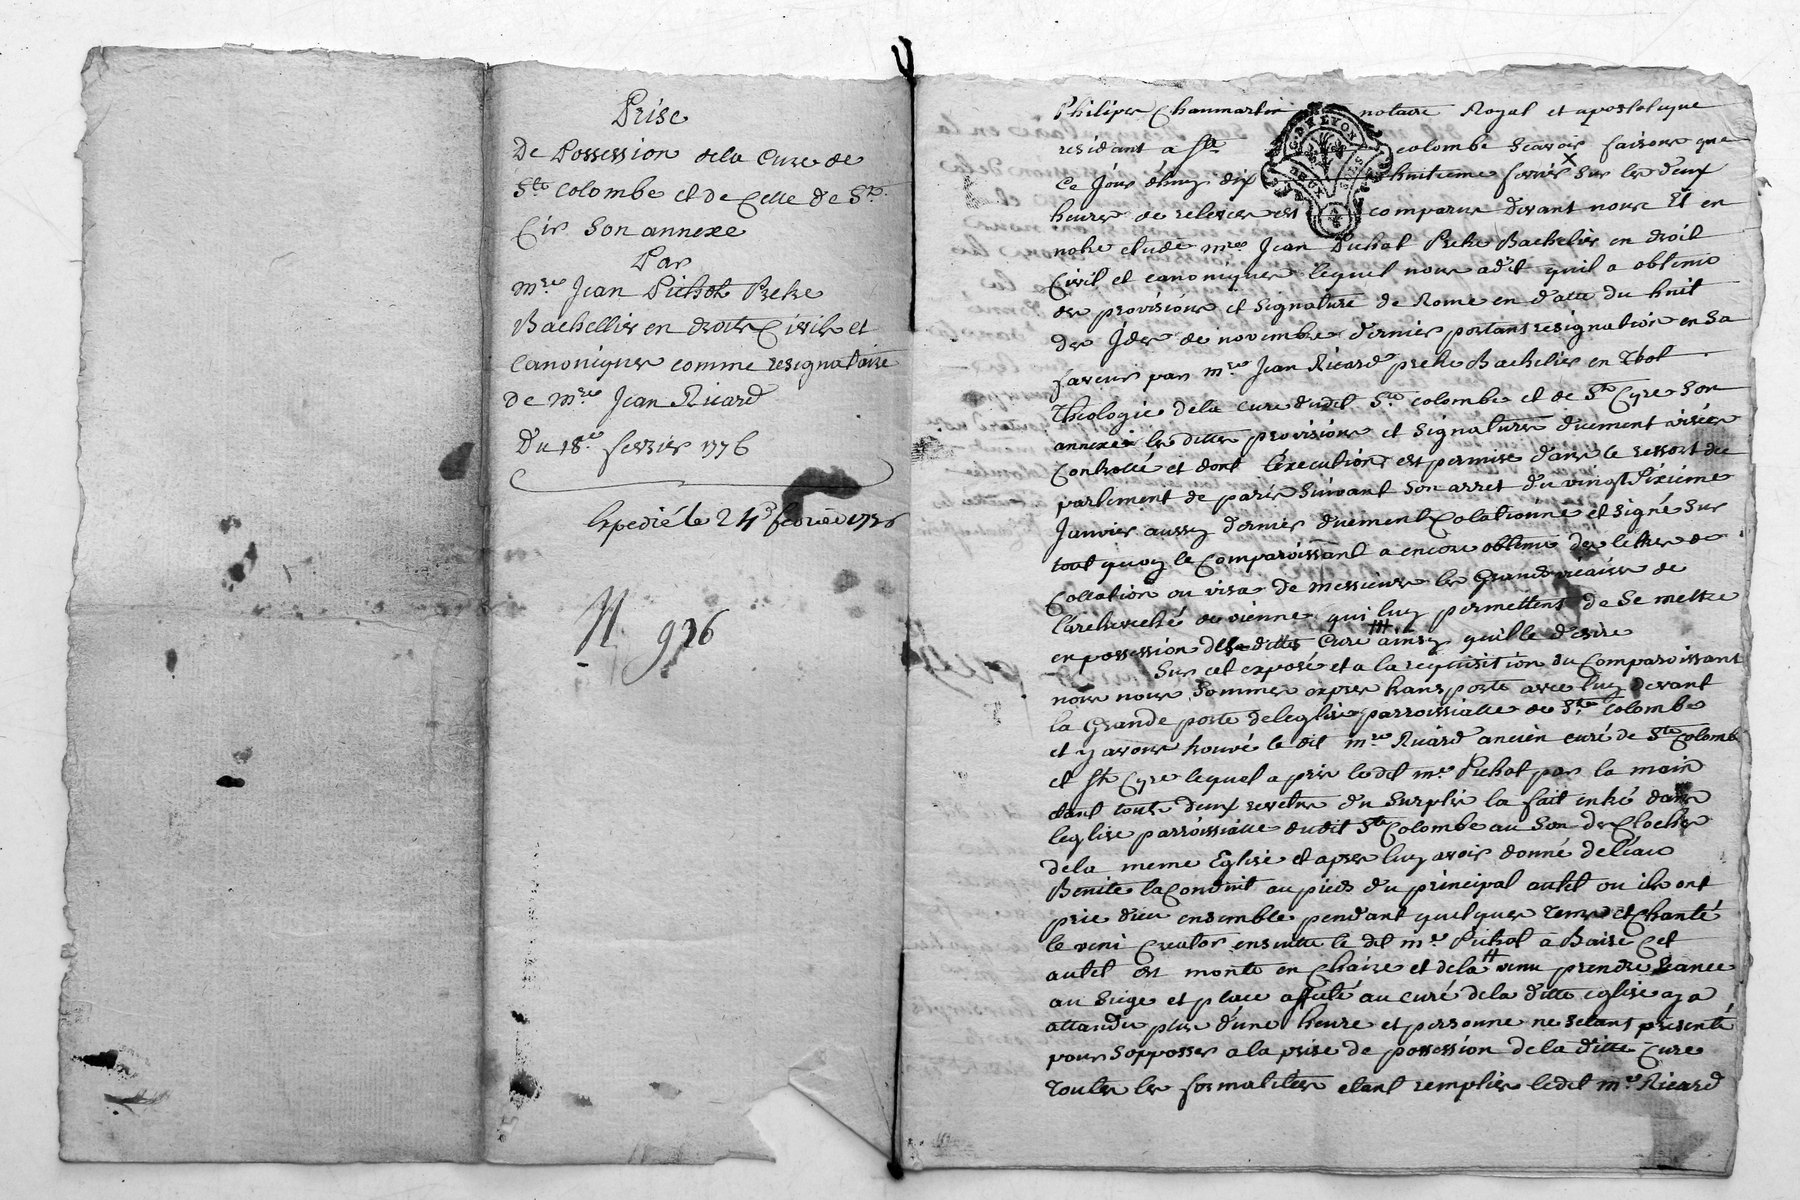 Prise
De Possession dela Cure de
Ste Colombe et de Celle de St
Cir Son annexe
Par
mre Jean Pichot Pretre
Bachellier en droits Civils et
Canoniques comme resignataire
de mre Jean Ricard
Du 18e fevrier 1776
Expedié le 24e fevrier 1776
N 926
Philipes Chaumartin notaire Royal et apostolique
residant a Ste colombe Scavoir faisons que
Ce Jour dhuy dix huitieme fevrier Sur les deux
heures de relevee est comparu devant nous Et en
notre etude mre Jean Pichot Pretre Bachelier en droit
Civil et canoniques lequel nous a dit quil a obtenu
des provisions et Signature de Rome en datte du huit
des Jdes de novembre dernier portant resignation en Sa
faveur par mre Jean Ricard pretre Bachelier en
Theologie dela cure dudit Ste colombe et de St Cyre Son
annexe les dittes provisions et Signatures duement visées
Controllé et dont l'execution est permise dans le ressort du
parlement de paris Suivant Son arret du vingt Sixieme
Janvier aussy dernier duement Colationné et Signé Sur
tout quoy le Comparoissant a encore obtenu des lettres de
Collation ou visa de messieurs les Grands vicaires de
l'archeveché de vienne qui luy permettent de Se mettre
en possession desdittes Cure ainsy quille desire
Sur cet exposé et a la requisition du Comparoissant
nous nous Sommes expres transporté avec luy devant
la Grande porte deleglise parroissialle de Ste Colombe
et y avons trouvé le dit mre Ricard ancien curé de Ste Colombe
et St Cyre lequel a pris ledit mre Pichot par la main
étant touts deux revetus du Surplis la fait entré dans
leglise parroissialle dudit Ste Colombe au Son des Cloches
dela meme Eglise et apres luy avoir donné deleau
Benite la Conduit au pieds du principal autel ou ils ont
prie dieu ensemble pendant quelques tems et Chanté
le veni Creator ensuitte le dit mre Pichot a Baisé Cet
autel est monté en Chaire et dela venu prendre Seance
au Siege et place affecté au curé dela ditte eglise ay a
attandu plus d'une heure et personne ne setant presenté
pour Sopposser a la prise de possession dela ditte Cure
toutes les formalitées etant remplies ledit mre Ricard